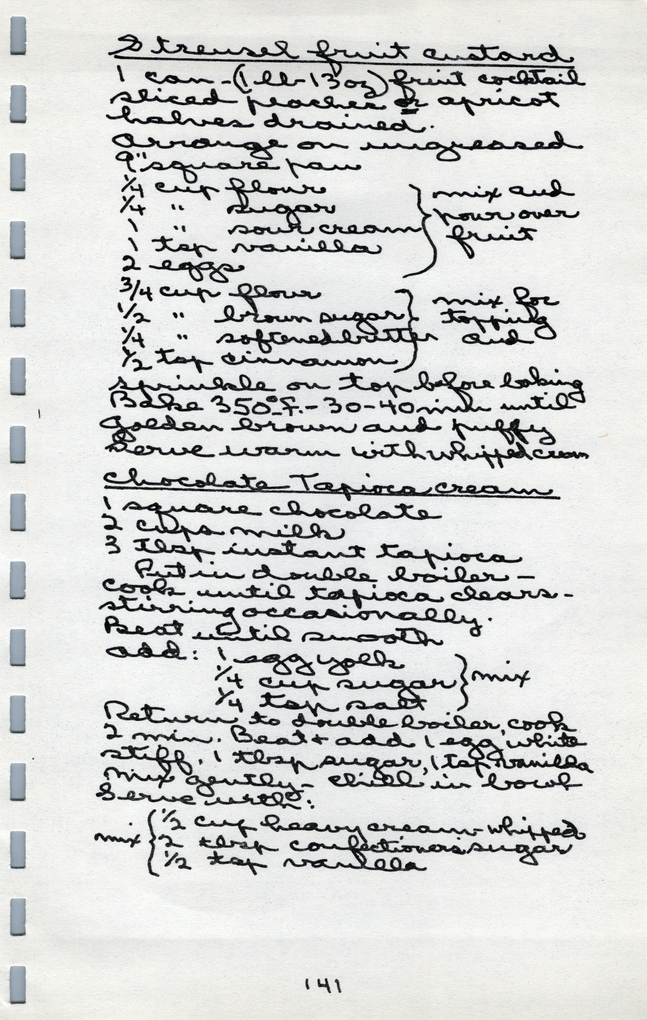 Streusel fruit custard
1 can-(1 lb-13oz) fruit cocktail
sliced peaches or apricot
halves drained.
Arrange on ungreased
9" square pan
1/4 cup flour } mix and
1/4 " sugar pour over
1 " sour cream fruit
1 tsp vanilla
2 eggs
3/4 cup flour } mix for
1/2 " brown sugar topping
1/4 " softened butter and
1/2 tsp cinnamon
sprinkle on top before baking
Bake 350°F.-30-40 min until
golden brown and puffy
Serve warm with whipped cream
Chocolate Tapioca cream
1 square chocolate
2 cups milk
3 tbsp instant tapioca
Put in double boiler-
cook until tapioca clears-
stirring occasionally.
Beat until smooth
add: 1 egg yolk
1/4 cup sugar } mix
1/4 tsp salt
Return to double boiler, cook
2 min. Beat + add 1 egg white
stiff, 1 tbsp sugar, 1 tsp vanilla
mix gently- chill in bowl
Serve with:
1/2 cup heavy cream whipped
mix { 2 tbsp confectioners sugar
1/2 tsp vanilla
141